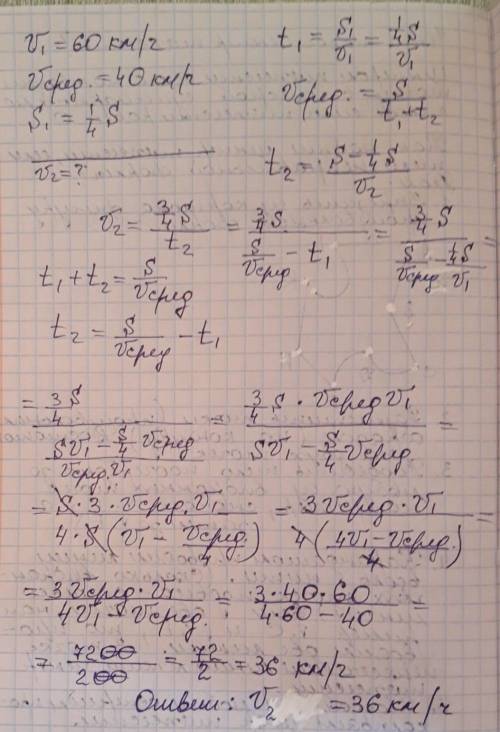 v₁ = 60 км/ч
t₁ = S₁/v₁ = ¼S/v₁
vсред. = 40 км/ч
vсред. = S/(t₁+t₂)
S₁ = ¼ S
t₂ = (S − ¼S)/v₂
v₂ = ?
v₂ = ¾S/t₂ = ¾S/(S/vсред − t₁) = ¾S/(S/vсред − ¼S/v₁) =
t₁ + t₂ = S/vсред
t₂ = S/vсред − t₁
= ¾S/((Sv₁ − S/4 vсред)/(vсред.v₁)) = (¾S · vсред v₁)/(Sv₁ − S/4 vсред.) =
= (S·3·vсред.v₁)/(4·S(v₁ − vсред./4)) = (3vсред·v₁)/(4((4v₁−vсред.)/4)) =
= (3vсред·v₁)/(4v₁ − vсред.) = (3·40·60)/(4·60−40) =
= 7200/200 = 72/2 = 36 км/ч
Ответ: v₂ = 36 км/ч